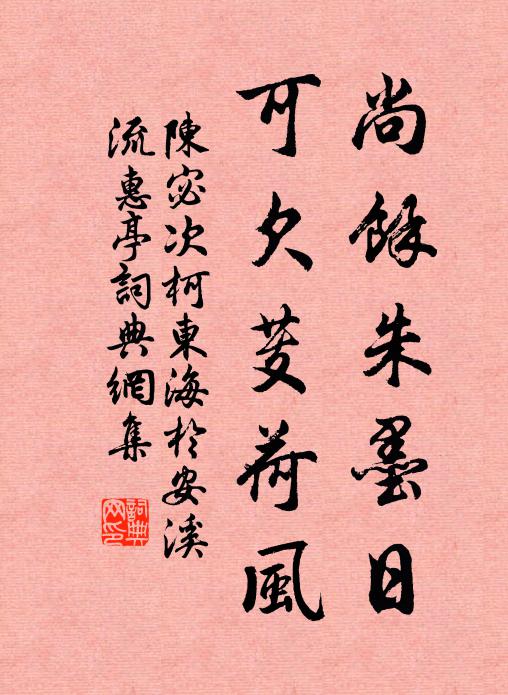 尚餘朱墨日
可欠芰荷風
陳宓次柯東海於安溪
流惠亭詞典網集
詞典网印